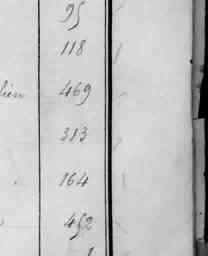 95
118
469
313
164
452